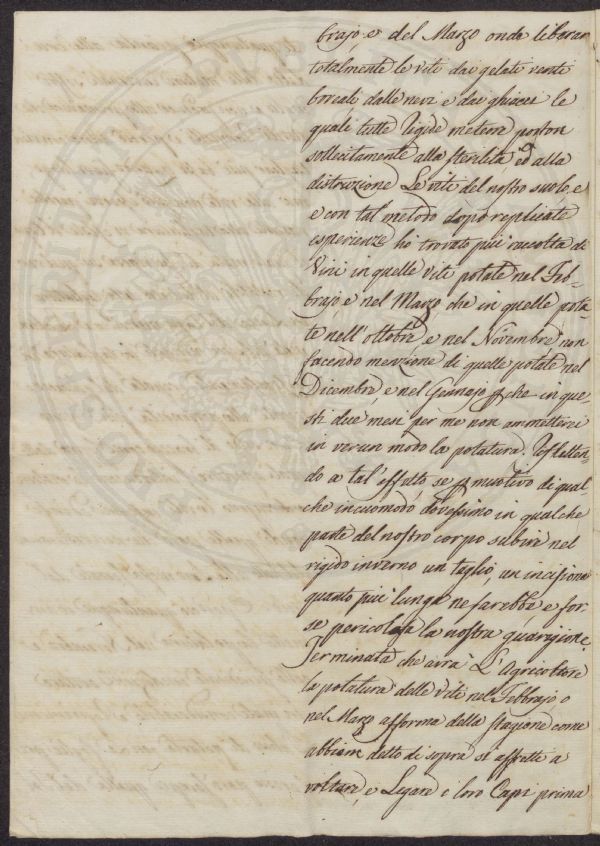 brajo e del Marzo onde liberar
totalmente le viti dai gelati venti
boreali dalle nevi e dai ghiacci le
quali tutte rigide meteore porton
sollecitamente alla sterilità ed alla
distruzione Le viti del nostro suolo, e
e con tal metodo dopo replicate
esperienze ho trovato più raccolta di
Vini in quelle viti potate nel Feb-
brajo e nel Marzo, che in quelle pota
te nell'ottobre, e nel Novembre non
facendo menzione di quelle potate nel
Dicembre e nel Gennajo che in que-
sti due mesi per me non ammetterei
in verun modo la potatura. Rifletten-
do a tal'effetto se motivo di qual
che incuomodo dovessimo in qualche
parte del nostro corpo subire nel
rigido inverno un taglio, un incisione
quanto più lunga ne sarebbe e for-
se pericolosa la nostra guarigione.
Terminata che avrà L'Agricoltore
la potatura delle Viti nel Febbrajo o
nel Marzo afforma della stagione come
abbiam detto di sopra si affretti a
voltare, e Legare i loro Capi prima